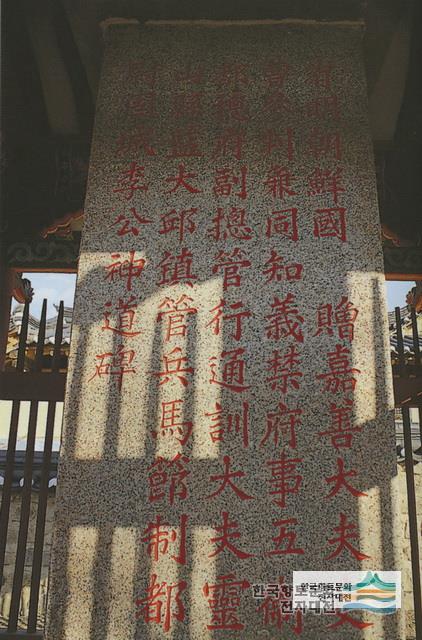 有明朝鮮國 贈嘉善大夫吏
曹參判兼同知義禁府事五衛
都摠府副總管行通訓大夫靈
山縣監大邱鎭管兵馬節制都
尉固城李公神道碑
한국향토문
전자대전
한국향토문화
전자대전